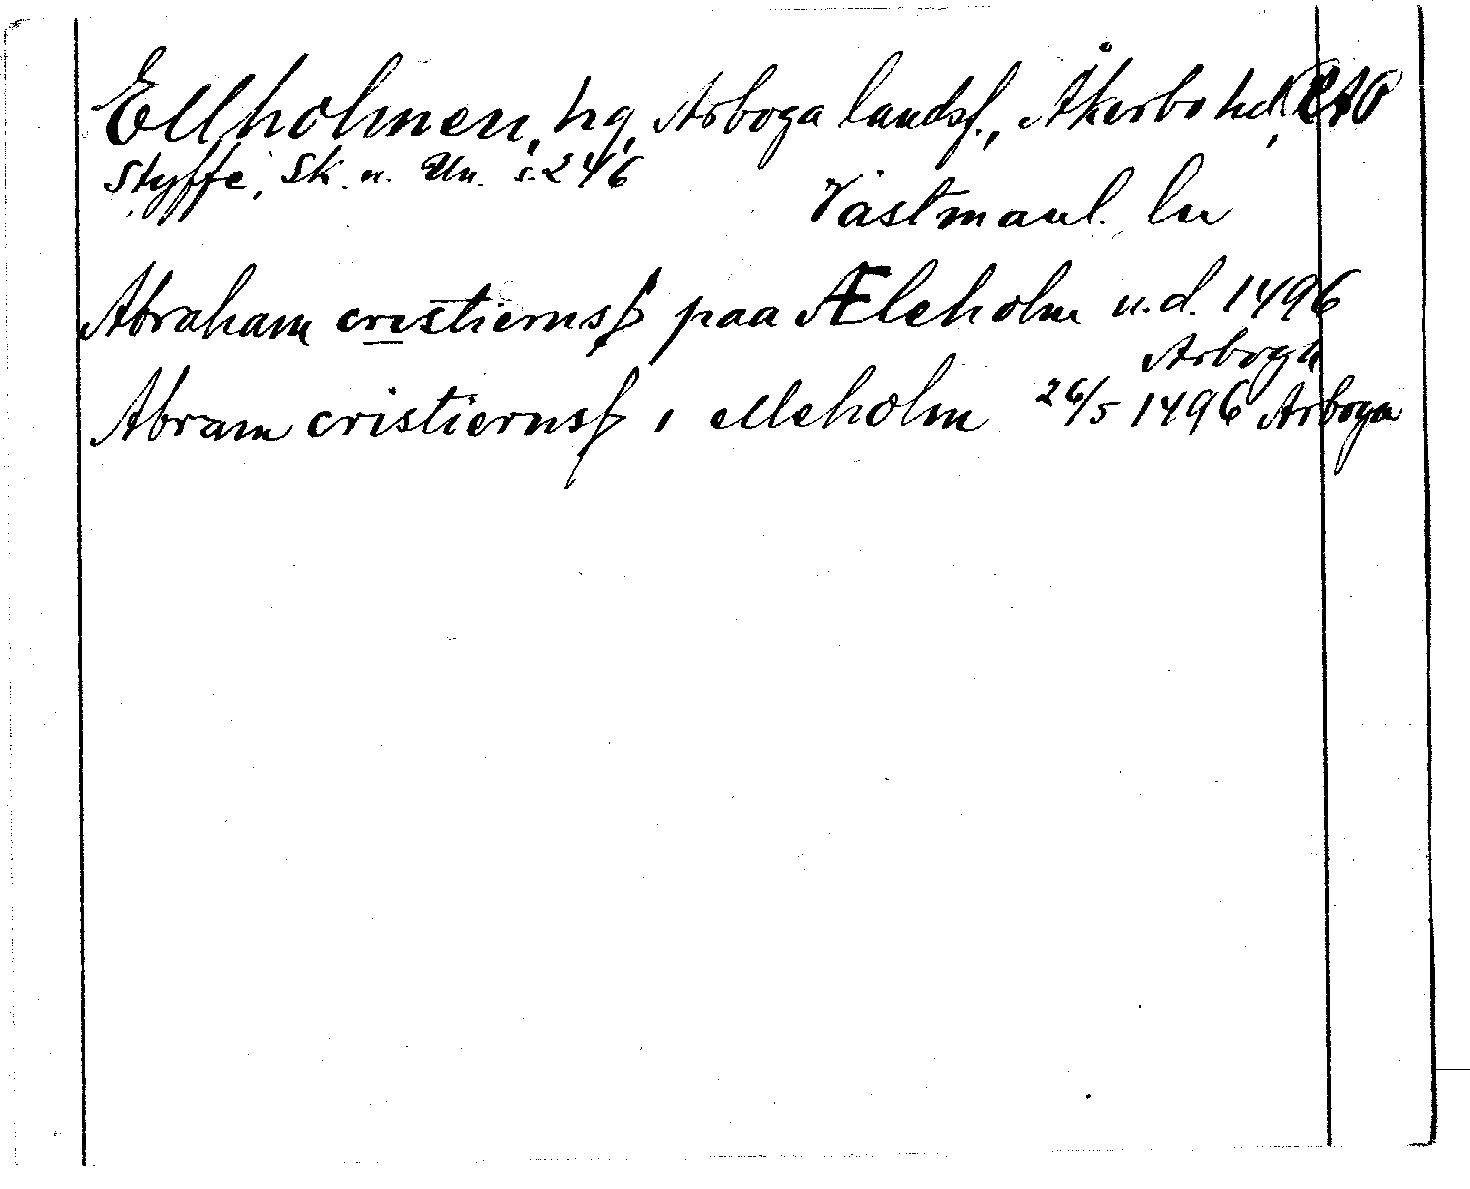 Ellholmen, hg, Arboga landsf., Åkerbo hd,
Styffe, Sk. u. Un. s. 246
Västmanl. ln
Abraham cristiernsß paa Æleholm u.d. 1496
Arboga
Abram cristiernsß i elleholm 26/5 1496 Arboga